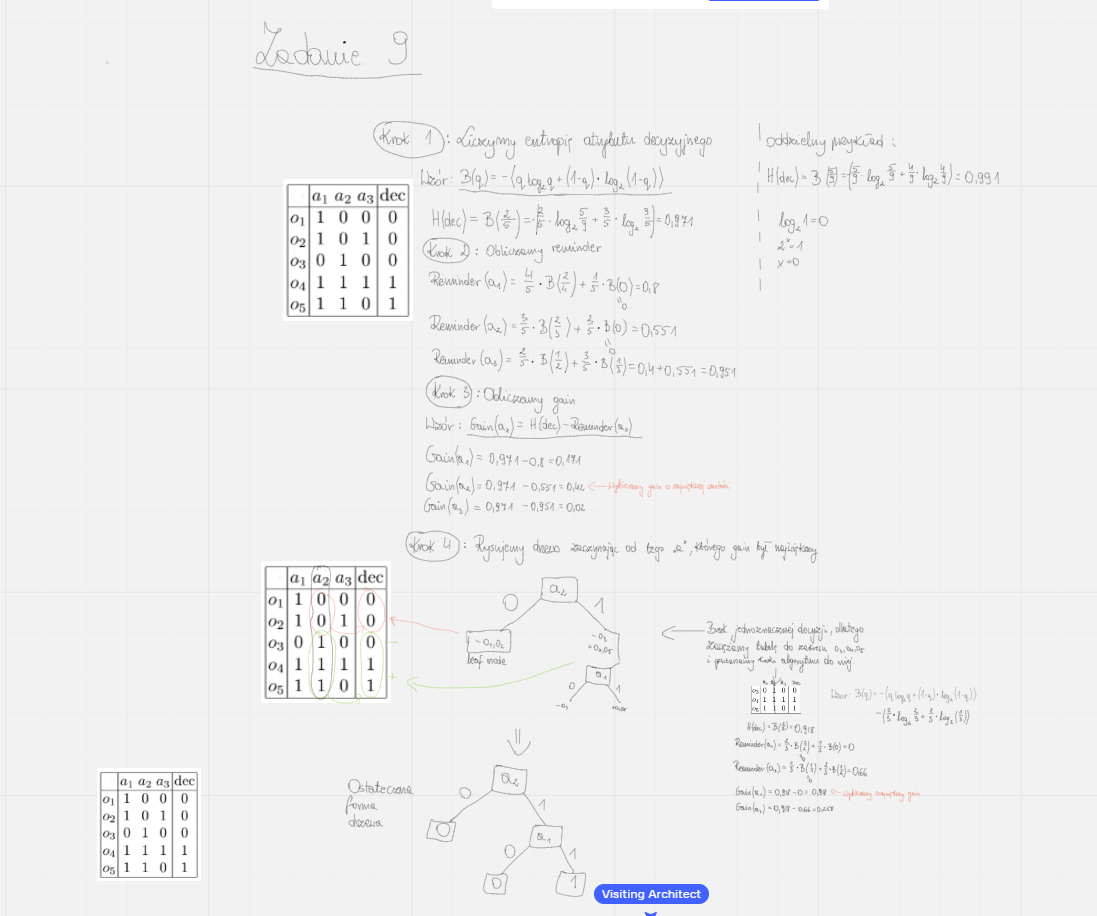 Zadanie 9
Krok 1 : Liczymy entropię atrybutu decyzyjnego
Wzór: B(q) = -(q log₂ q + (1-q) · log₂ (1-q))
H(dec) = B(2/5) = -(2/5 · log₂ 5/9 + 3/5 · log₂ 3/5) = 0,971
oddzielny przykład :
H(dec) = B(5/9) = (5/9 · log₂ 5/9 + 4/9 · log₂ 4/9) = 0,991
log₂ 1 = 0
2ˣ = 1
x = 0
a₁ a₂ a₃ dec
o₁ 1 0 0 0
o₂ 1 0 1 0
o₃ 0 1 0 0
o₄ 1 1 1 1
o₅ 1 1 0 1
Krok 2 : Obliczamy reminder
Reminder (a₁) = 4/5 · B(2/4) + 1/5 · B(0) = 0,8
0
Reminder (a₂) = 3/5 · B(2/3) + 2/5 · B(0) = 0,551
0
Reminder (a₃) = 2/5 · B(1/2) + 3/5 · B(1/3) = 0,4 + 0,551 = 0,951
Krok 3 : Obliczamy gain
Wzór : Gain(aₓ) = H(dec) - Reminder(aₓ)
Gain(a₁) = 0,971 - 0,8 = 0,171
Gain(a₂) = 0,971 - 0,551 = 0,42 ← wybieramy gain o największej wartości
Gain(a₃) = 0,971 - 0,951 = 0,02
Krok 4 : Rysujemy drzewo zaczynając od tego "a", którego gain był największy
a₁ a₂ a₃ dec
o₁ 1 0 0 0
o₂ 1 0 1 0
o₃ 0 1 0 0
o₄ 1 1 1 1
o₅ 1 1 0 1
-
+
a₂
0 1
- o₁, o₂
leaf node
- o₃
+ o₄, o₅
a₁
0 1
- o₃ + o₄, o₅
Brak jednoznacznej decyzji, dlatego
zawężamy tabelę do zakresu o₃, o₄, o₅
i powtarzamy kroki algorytmu do niej
a₁ a₂ a₃ dec
o₃ 0 1 0 0
o₄ 1 1 1 1
o₅ 1 1 0 1
Wzór: B(q) = -(q log₂ q + (1-q) · log₂ (1-q))
-(2/3 · log₂ 2/3 + 1/3 · log₂ (1/3))
H(dec) = B(2/3) = 0,918
Reminder(a₁) = 2/3 · B(2/2) + 1/3 · B(0) = 0
Reminder(a₃) = 1/3 · B(1/1) + 2/3 · B(1/2) = 0,66
Gain(a₁) = 0,918 - 0 = 0,918 ← wybieramy największy gain
Gain(a₃) = 0,918 - 0,66 = 0,258
Ostateczna
forma
drzewa
a₂
0 1
0
a₁
0 1
0 1
a₁ a₂ a₃ dec
o₁ 1 0 0 0
o₂ 1 0 1 0
o₃ 0 1 0 0
o₄ 1 1 1 1
o₅ 1 1 0 1
Visiting Architect